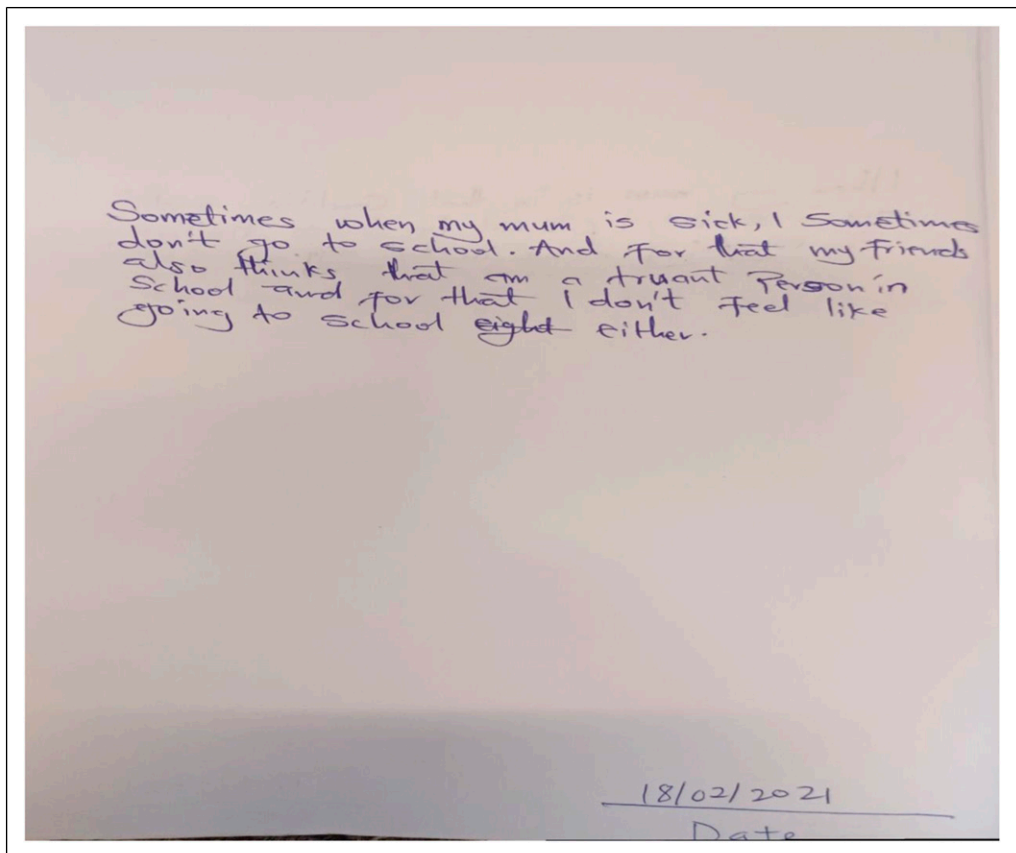 Sometimes when my mum is sick, I Sometimes
don't go to school. And For that my friends
also thinks that am a truant Person in
School and for that I don't Feel like
going to school eight either.
18/02/2021
Date